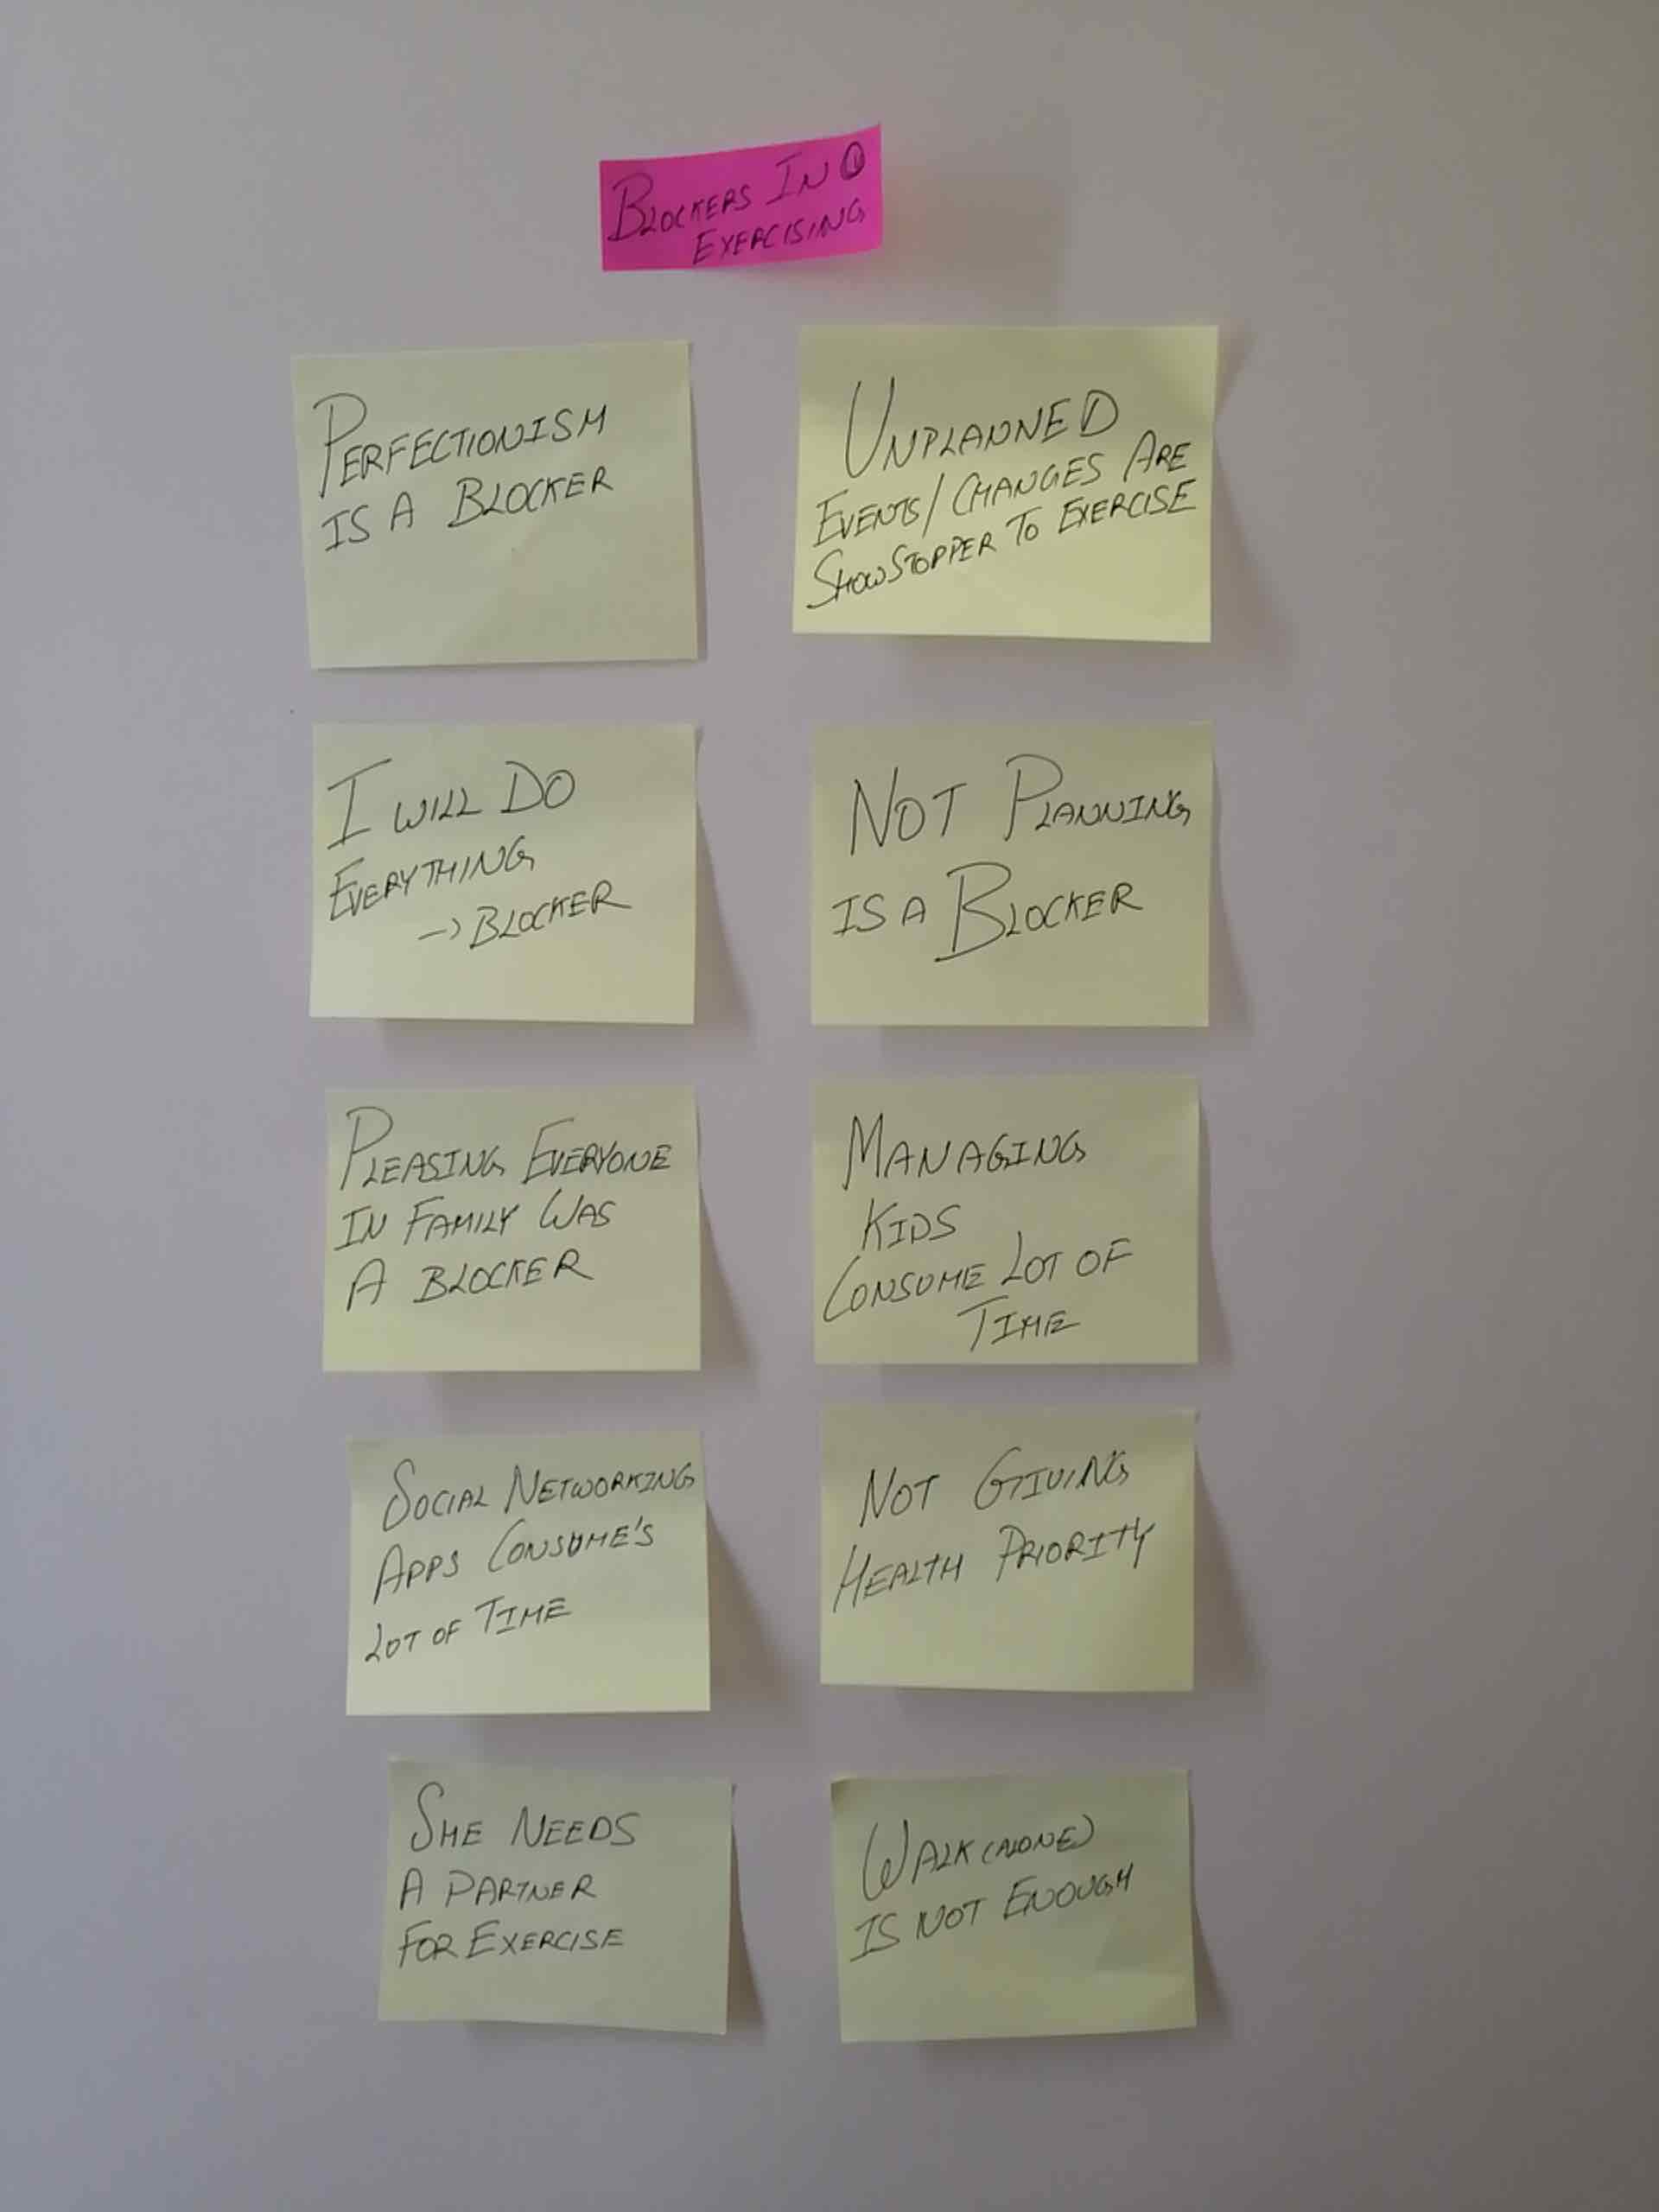 BLOCKERS IN
EXERCISING
PERFECTIONISM
IS A BLOCKER
UNPLANNED
EVENTS/CHANGES ARE
SHOWSTOPPER TO EXERCISE
I WILL DO
EVERYTHING
-> BLOCKER
NOT PLANNING
IS A BLOCKER
PLEASING EVERYONE
IN FAMILY WAS
A BLOCKER
MANAGING
KIDS
CONSUME LOT OF
TIME
SOCIAL NETWORKING
APPS CONSUME'S
LOT OF TIME
NOT GIVING
HEALTH PRIORITY
SHE NEEDS
A PARTNER
FOR EXERCISE
WALK (ALONE)
IS NOT ENOUGH